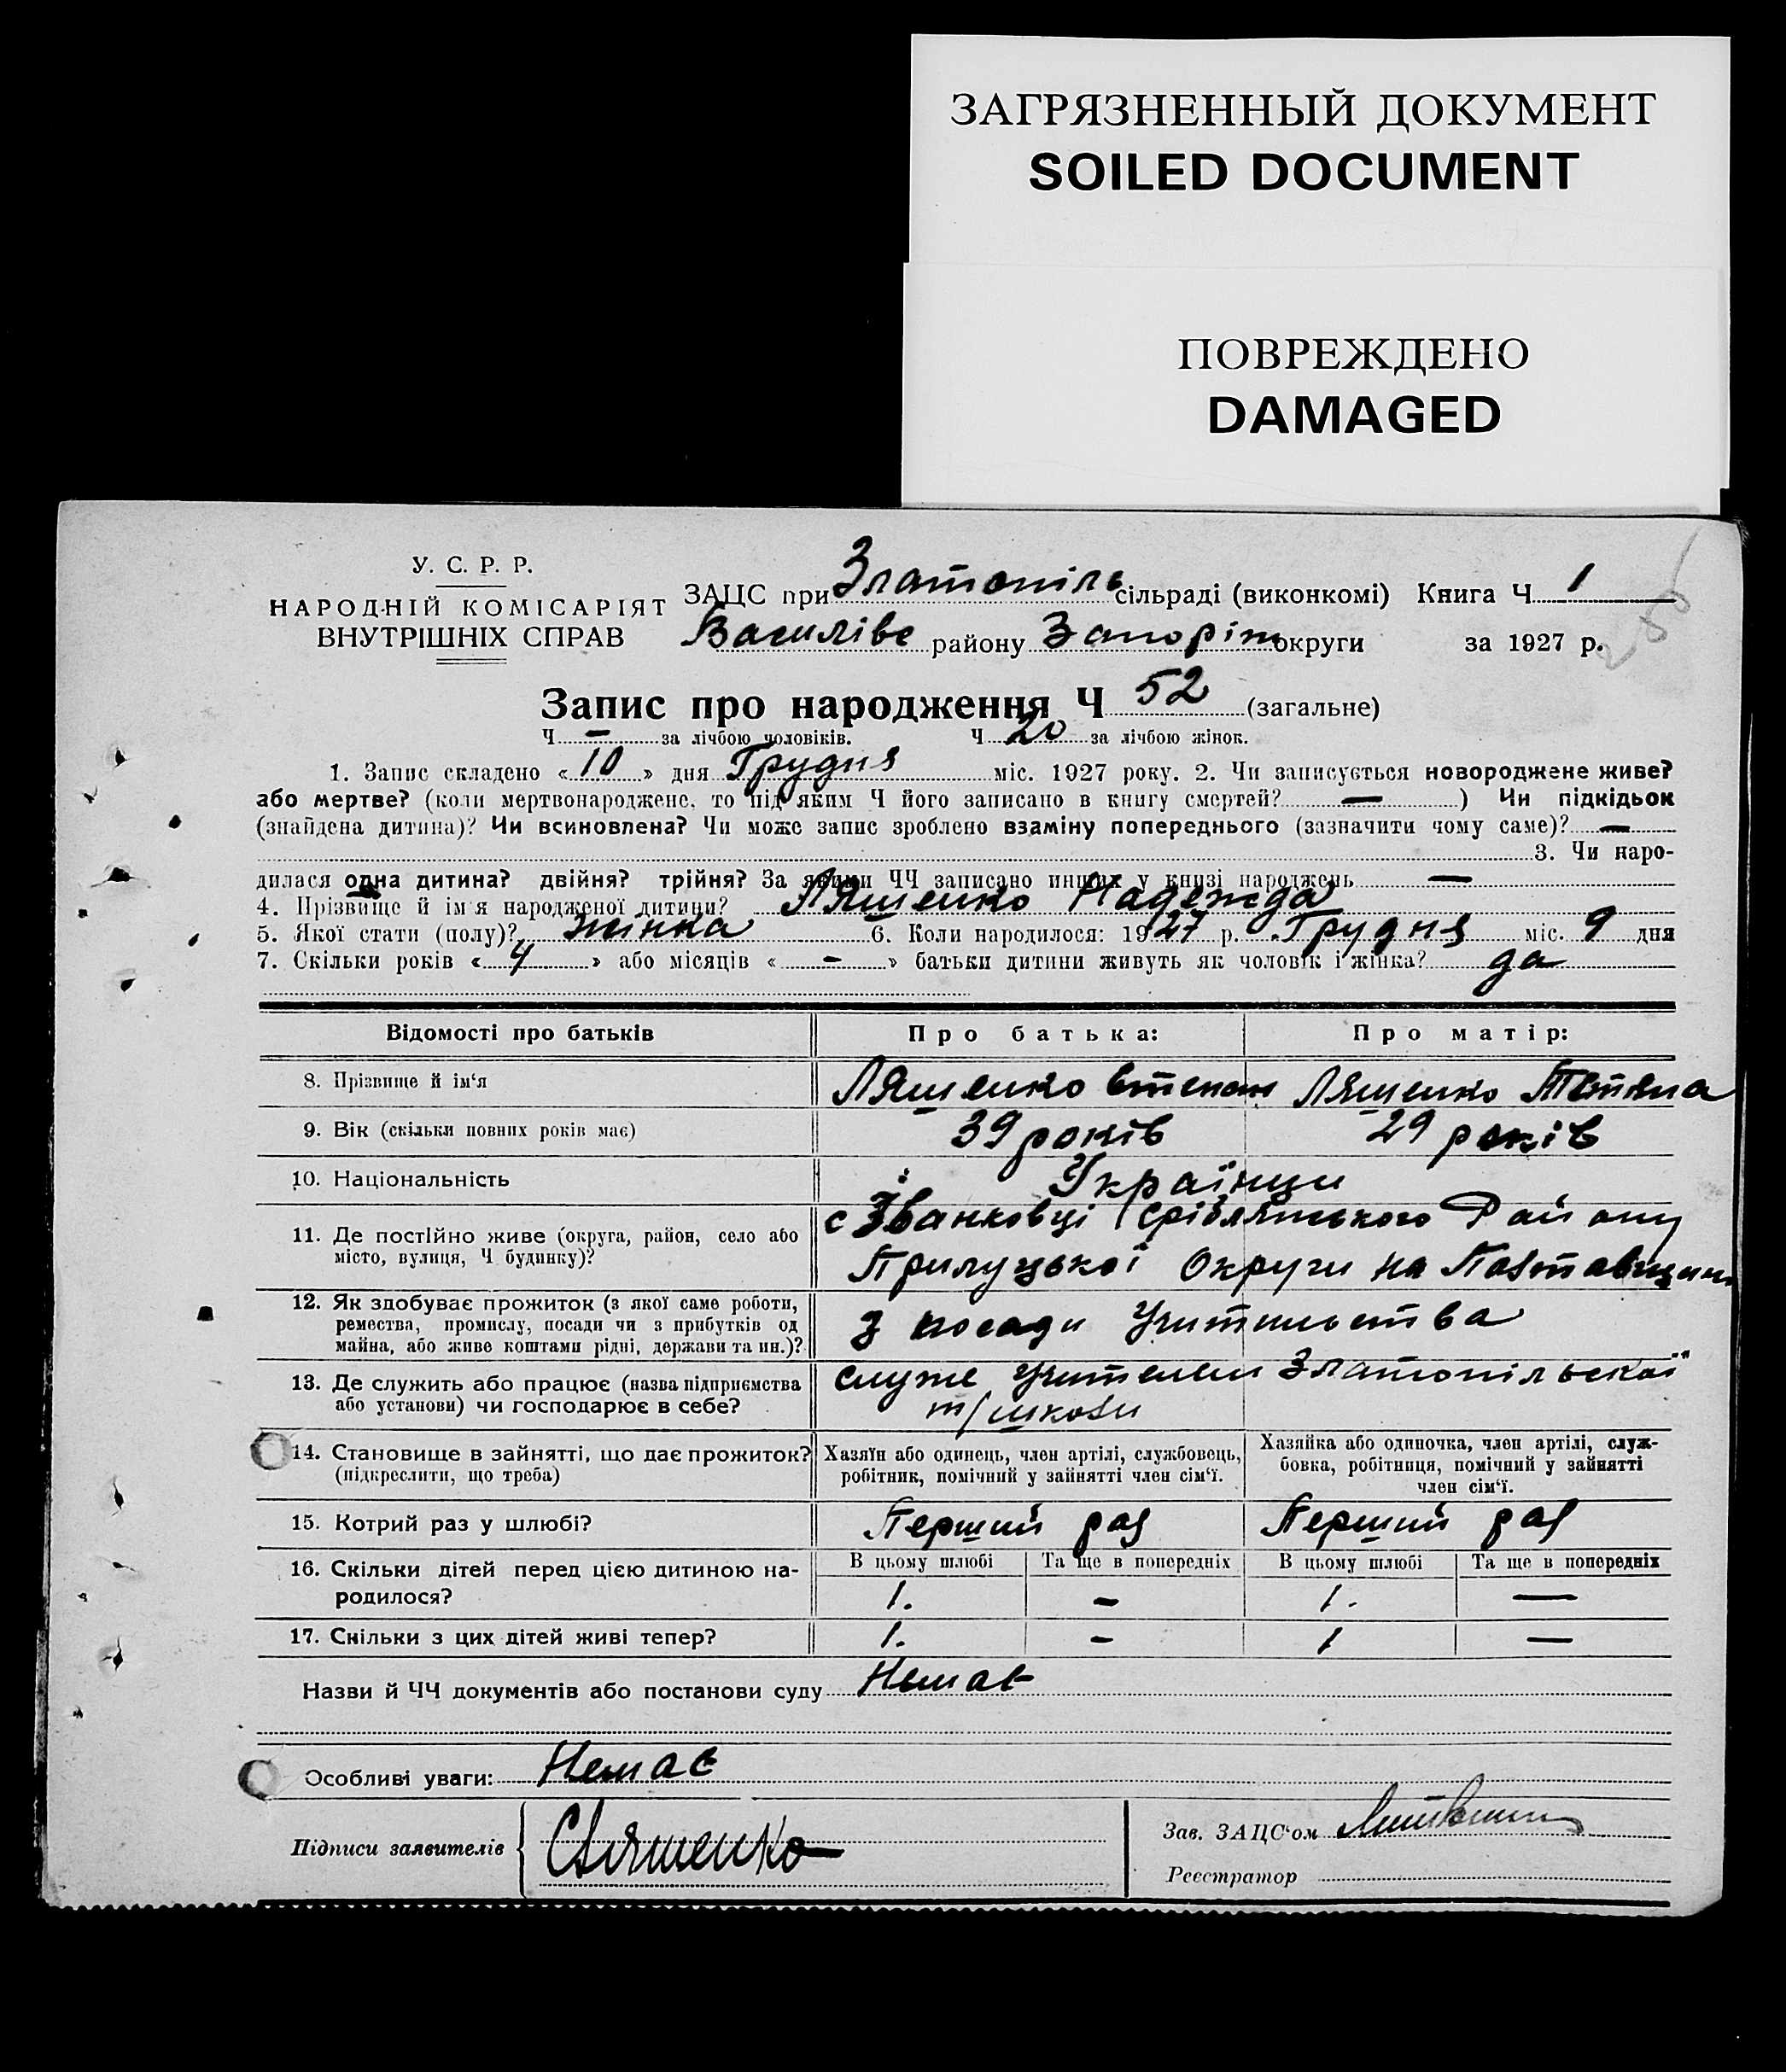 ЗАГРЯЗНЕННЫЙ ДОКУМЕНТ
SOILED DOCUMENT
ПОВРЕЖДЕНО
DAMAGED
У. С. Р. Р.
НАРОДНІЙ КОМІСАРІЯТ
ВНУТРІШНІХ СПРАВ
ЗАЦС при Златопіль сільраді (виконкомі) Книга Ч 1
Василівс району Запоріж округи за 1927 р.
Запис про народження Ч 52 (загальне)
Ч — за лічбою чоловіків. Ч 20 за лічбою жінок.
1. Запис складено « 10 » дня Грудня міс. 1927 року. 2. Чи записується новороджене живе?
або мертве? (коли мертвонароджене, то під яким Ч його записано в книгу смертей? — ) Чи підкідьок
(знайдена дитина)? Чи всиновлена? Чи може запис зроблено взаміну попереднього (зазначити чому саме)? —
3. Чи наро-
дилася одна дитина? двійня? трійня? За якими ЧЧ записано инших у книзі народжень —
4. Прізвище й ім'я народженої дитини? Ляшенко Надежда
5. Якої стати (полу)? жінка 6. Коли народилося: 1927 р. Грудня міс. 9 дня
7. Скільки років « 4 » або місяців « - » батьки дитини живуть як чоловік і жінка? да
Відомості про батьків Про батька: Про матір:
8. Прізвище й ім'я Ляшенко Степан Ляшенко Тетяна
9. Вік (скільки повних років має) 39 років 29 років
10. Національність Українци
11. Де постійно живе (округа, район, село або
місто, вулиця, Ч будинку)?
с Іванковці Срібнянського Району
Прилуцької Округи на Полтавщині
12. Як здобуває прожиток (з якої саме роботи,
ремества, промислу, посади чи з прибутків од
майна, або живе коштами рідні, держави та ин.)?
З посади Учительства
13. Де служить або працює (назва підприємства
або установи) чи господарює в себе?
служе Учителем Златопільскої
т/школи
14. Становище в зайнятті, що дає прожиток?
(підкреслити, що треба)
Хазяїн або одинець, член артілі, службовець,
робітник, помічний у зайнятті член сім'ї.
Хазяйка або одиночка, член артілі, служ-
бовка, робітниця, помічний у зайнятті
член сім'ї.
15. Котрий раз у шлюбі? Перший раз Перший раз
16. Скільки дітей перед цією дитиною на-
родилося?
В цьому шлюбі Та ще в попередніх В цьому шлюбі Та ще в попередніх
1. - 1. —
17. Скільки з цих дітей живі тепер? 1. - 1 —
Назви й ЧЧ документів або постанови суду Немає
Особливі уваги: Немає
Підписи заявителів СЛяшенко
Зав. ЗАЦС'ом
Реєстратор